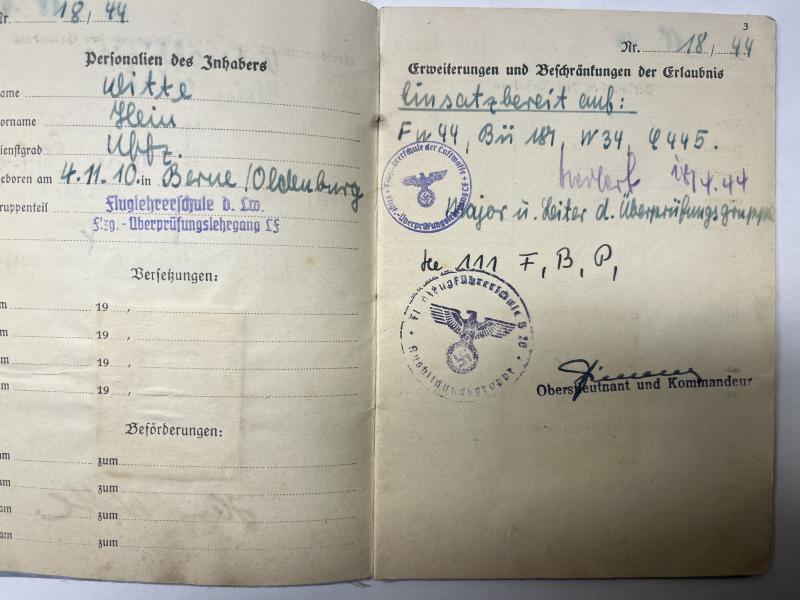 Nr. 18/44
Personalien des Inhabers
ame Witte
orname Hein
ienstgrad Uffz.
eboren am 4.11.10. in Berne/Oldenburg
ruppenteil Fluglehrerschule d. Lw.
Flzg.-Überprüfungslehrgang CF
Versetzungen:
m 19 ,
m 19 ,
m 19 ,
m 19 ,
Beförderungen:
am zum
am zum
am zum
am zum
3
Nr. 18/44
Erweiterungen und Beschränkungen der Erlaubnis
Einsatzbereit auf:
Fw 44, Bü 181, W 34, C 445.
Fluglehrerschule der Luftwaffe
4.44
Major u. Leiter d. Überprüfungsgruppe
He 111 F, B, P,
Flugzeugführerschule B 20
Oberstleutnant und Kommandeur